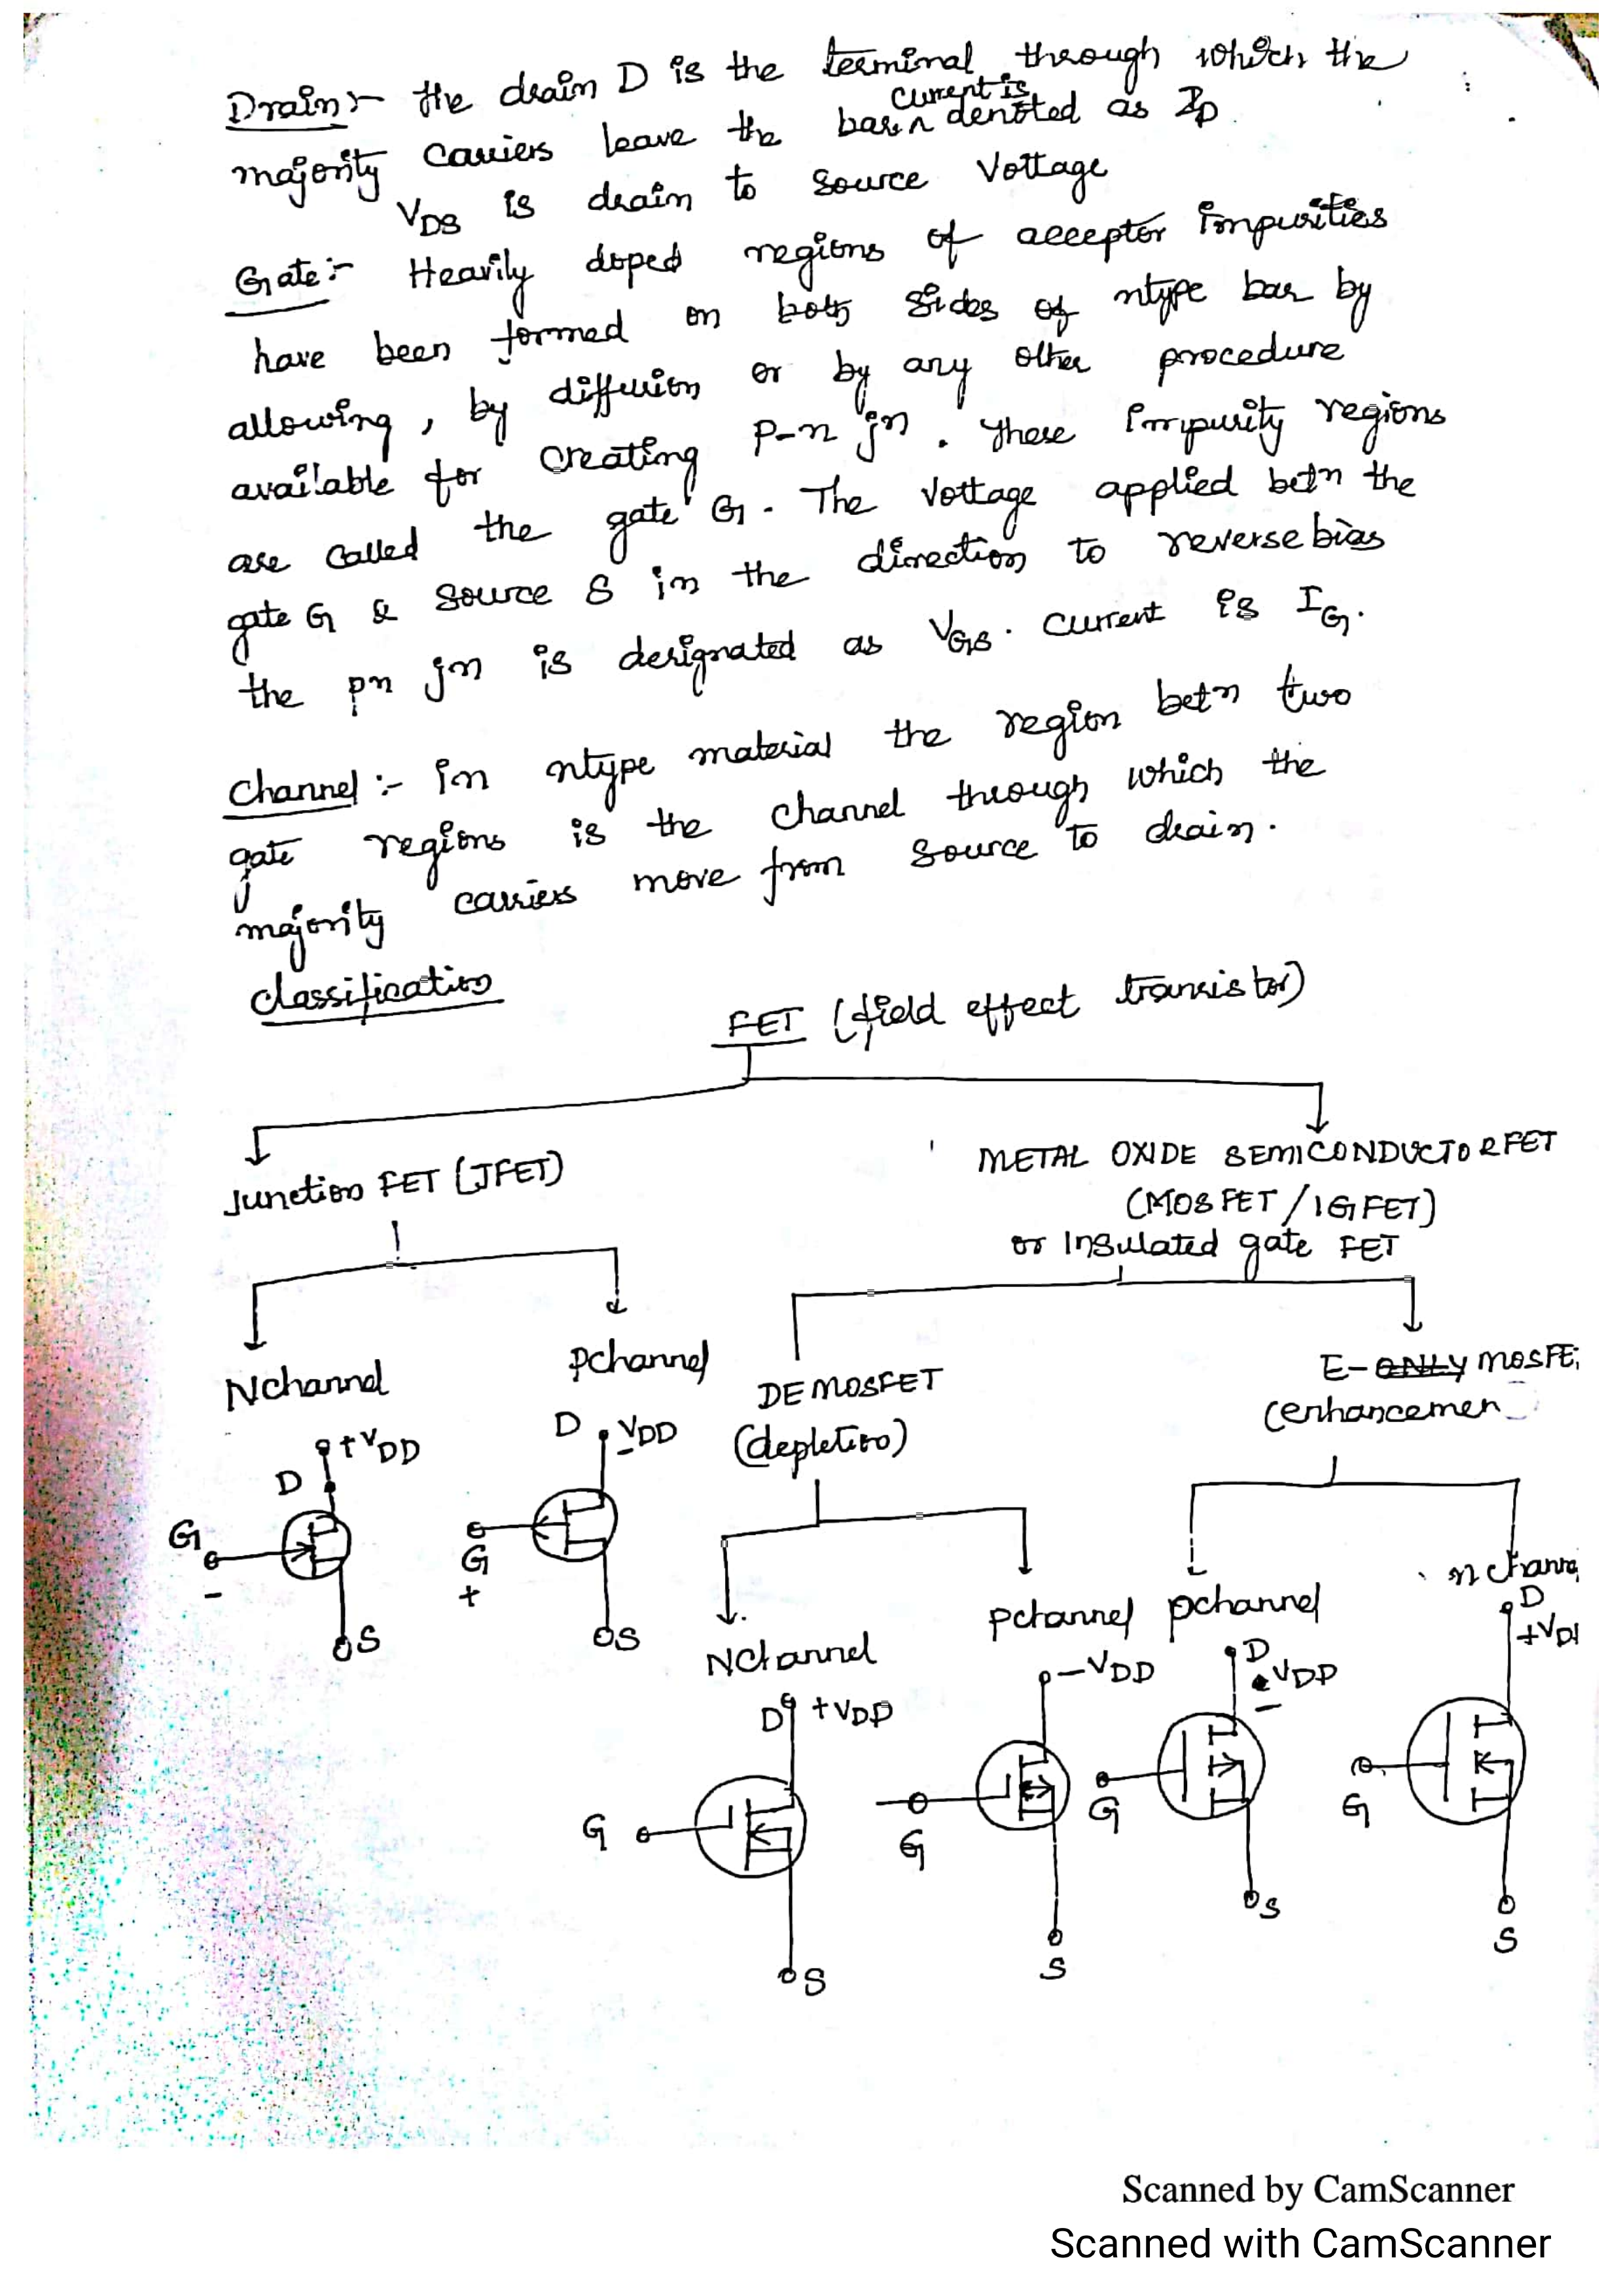 Drain :- the drain D is the terminal through which the
majority carriers leave the bar ʌ current is denoted as ID.
VDS is drain to source Voltage
Gate :- Heavily doped regions of acceptor impurities
have been formed on both sides of ntype bar by
allowing, by diffusion or by any other procedure
available for creating P-n jn. These impurity regions
are called the gate G. The Voltage applied betn the
gate G & source S in the direction to reverse bias
the pn jn is designated as VGS. Current is IG.
Channel :- In ntype material the region betn two
gate regions is the channel through which the
majority carriers move from source to drain.
classification
FET (field effect transistor)
Junction FET (JFET)
METAL OXIDE SEMICONDUCTOR FET
(MOSFET / IGFET)
or Insulated gate FET
Nchannel
Pchannel
DE MOSFET
(depletion)
E-ONLY MOSFE
(enhancemen
D
+VDD
G
-
S
D
-VDD
G
+
S
Nchannel
Pchannel
pchannel
n chann
D
+VDD
G
S
-VDD
G
S
D
-VDD
G
S
D
+VD
G
S
Scanned by CamScanner
Scanned with CamScanner